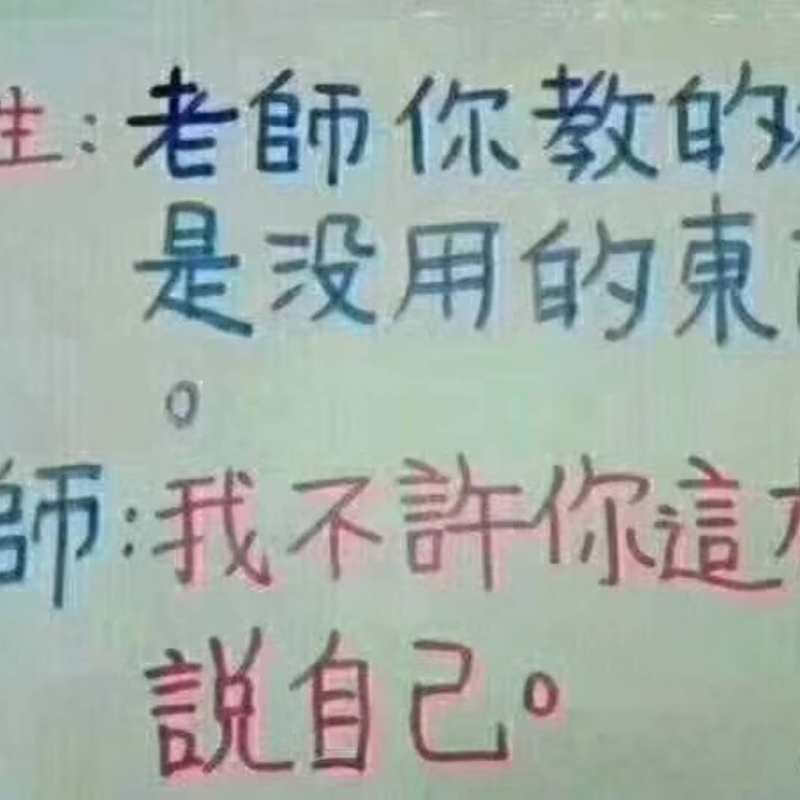 生:老師你教的
是没用的東
。
師:我不許你這
說自己。